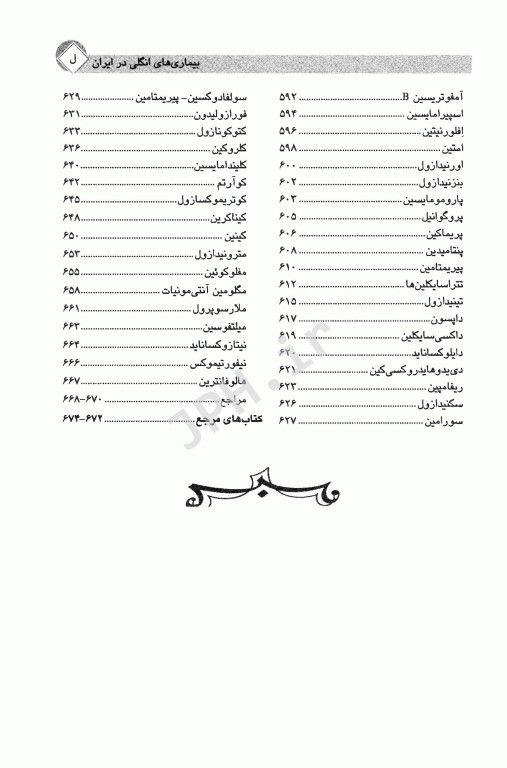 بیماری‌های انگلی در ایران
ل
آمفوتریسین B ........ ۵۹۲
اسپیرامایسین ........ ۵۹۴
افلورنیتین ........ ۵۹۶
امتین ........ ۵۹۸
اورنیدازول ........ ۶۰۰
بنزنیدازول ........ ۶۰۲
پارومومایسین ........ ۶۰۳
پروگوانیل ........ ۶۰۵
پریماکین ........ ۶۰۶
پنتامیدین ........ ۶۰۸
پیریمتامین ........ ۶۱۰
تتراسایکلین‌ها ........ ۶۱۲
تینیدازول ........ ۶۱۵
داپسون ........ ۶۱۷
داکسی‌سایکلین ........ ۶۱۹
دایلوکساناید ........ ۶۲۰
دی‌یدوهایدروکسی‌کین ........ ۶۲۱
ریفامپین ........ ۶۲۳
سکنیدازول ........ ۶۲۶
سورامین ........ ۶۲۷
سولفادوکسین- پیریمتامین ........ ۶۲۹
فورازولیدون ........ ۶۳۱
کتوکونازول ........ ۶۳۳
کلروکین ........ ۶۳۶
کلیندامایسین ........ ۶۴۰
کوآرتم ........ ۶۴۲
کوتریموکسازول ........ ۶۴۵
کیناکرین ........ ۶۴۸
کینین ........ ۶۵۰
مترونیدازول ........ ۶۵۳
مفلوکوئین ........ ۶۵۵
مگلومین آنتی‌مونیات ........ ۶۵۸
ملارسوپرول ........ ۶۶۱
میلتفوسین ........ ۶۶۳
نیتازوکساناید ........ ۶۶۴
نیفورتیموکس ........ ۶۶۶
هالوفانترین ........ ۶۶۷
مراجع ........ ۶۷۰-۶۶۸
کتاب‌های مرجع ........ ۶۷۲-۶۷۴
JPH.ir